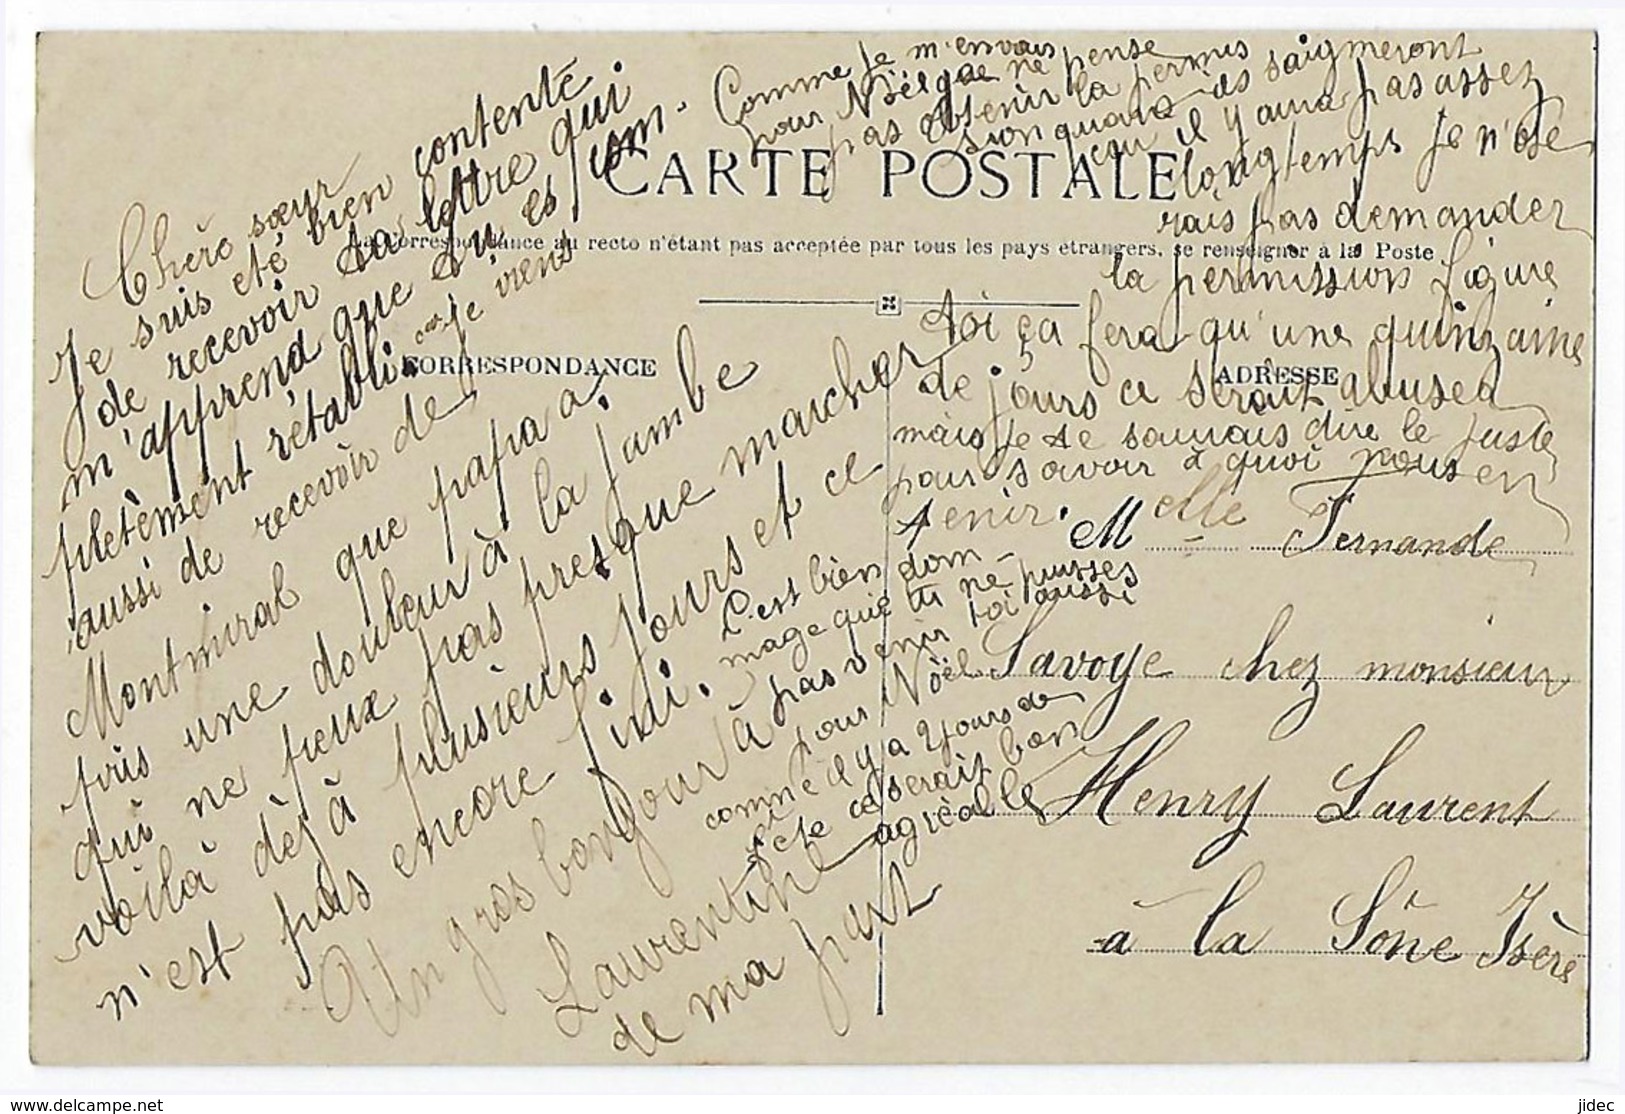 CARTE POSTALE
La correspondance au recto n'étant pas acceptée par tous les pays etrangers, se renseigner à la Poste
CORRESPONDANCE
ADRESSE
Chère sœur
Je suis eté bien contente
de recevoir ta lettre qui
m'apprend que tu es com-
plètement rétabli. car je viens
aussi de recevoir de
Montmiral que papa a
pris une douleur à la jambe
qui ne peux pas presque marcher
voilà dèjà plusieurs jours et ce
n'est pas encore fini.
Un gros bonjour à
Laurentine
de ma part
C'est bien dom-
mage que tu ne puisses
pas venir toi aussi
pour Noël
comme il y a 2 jours de
fête ce serait bon
agréable
Comme je m'envais
pour Noël je ne pense
pas obtenir la permis
sion quand ils saigneront
car il y aura pas assez
longtemps je n'ose
rais pas demander
la permission figure
toi ça fera qu'une quinzaine
de jours ce serait abuser
mais je te saurais dire le juste
pour savoir à quoi nous en
tenir.
Melle Fernande
Savoye chez monsieur
Henry Laurent
à la Sône Isère
delcampe.net
jidec